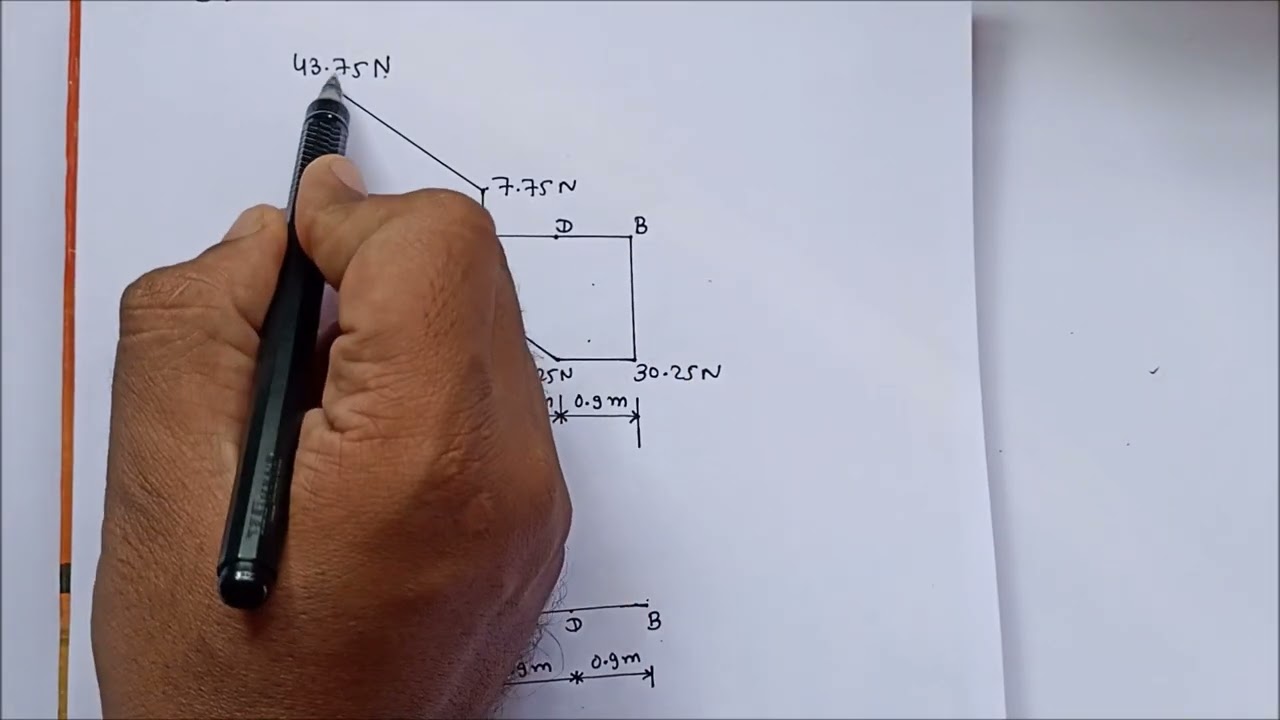 43.75N
7.75N
D B
25N 30.25N
0.9m
D B
.9m 0.9m